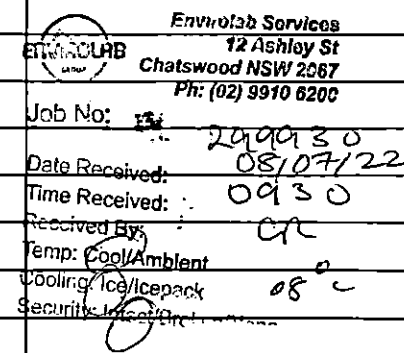 Envirolab Services
ENVIROLAB
GROUP
12 Ashley St
Chatswood NSW 2067
Ph: (02) 9910 6200
Job No: 299930
Date Received: 08/07/22
Time Received: 0930
Received By:
Temp: Cool/Ambient
Cooling: Ice/Icepack 08°C
Security: Intact/